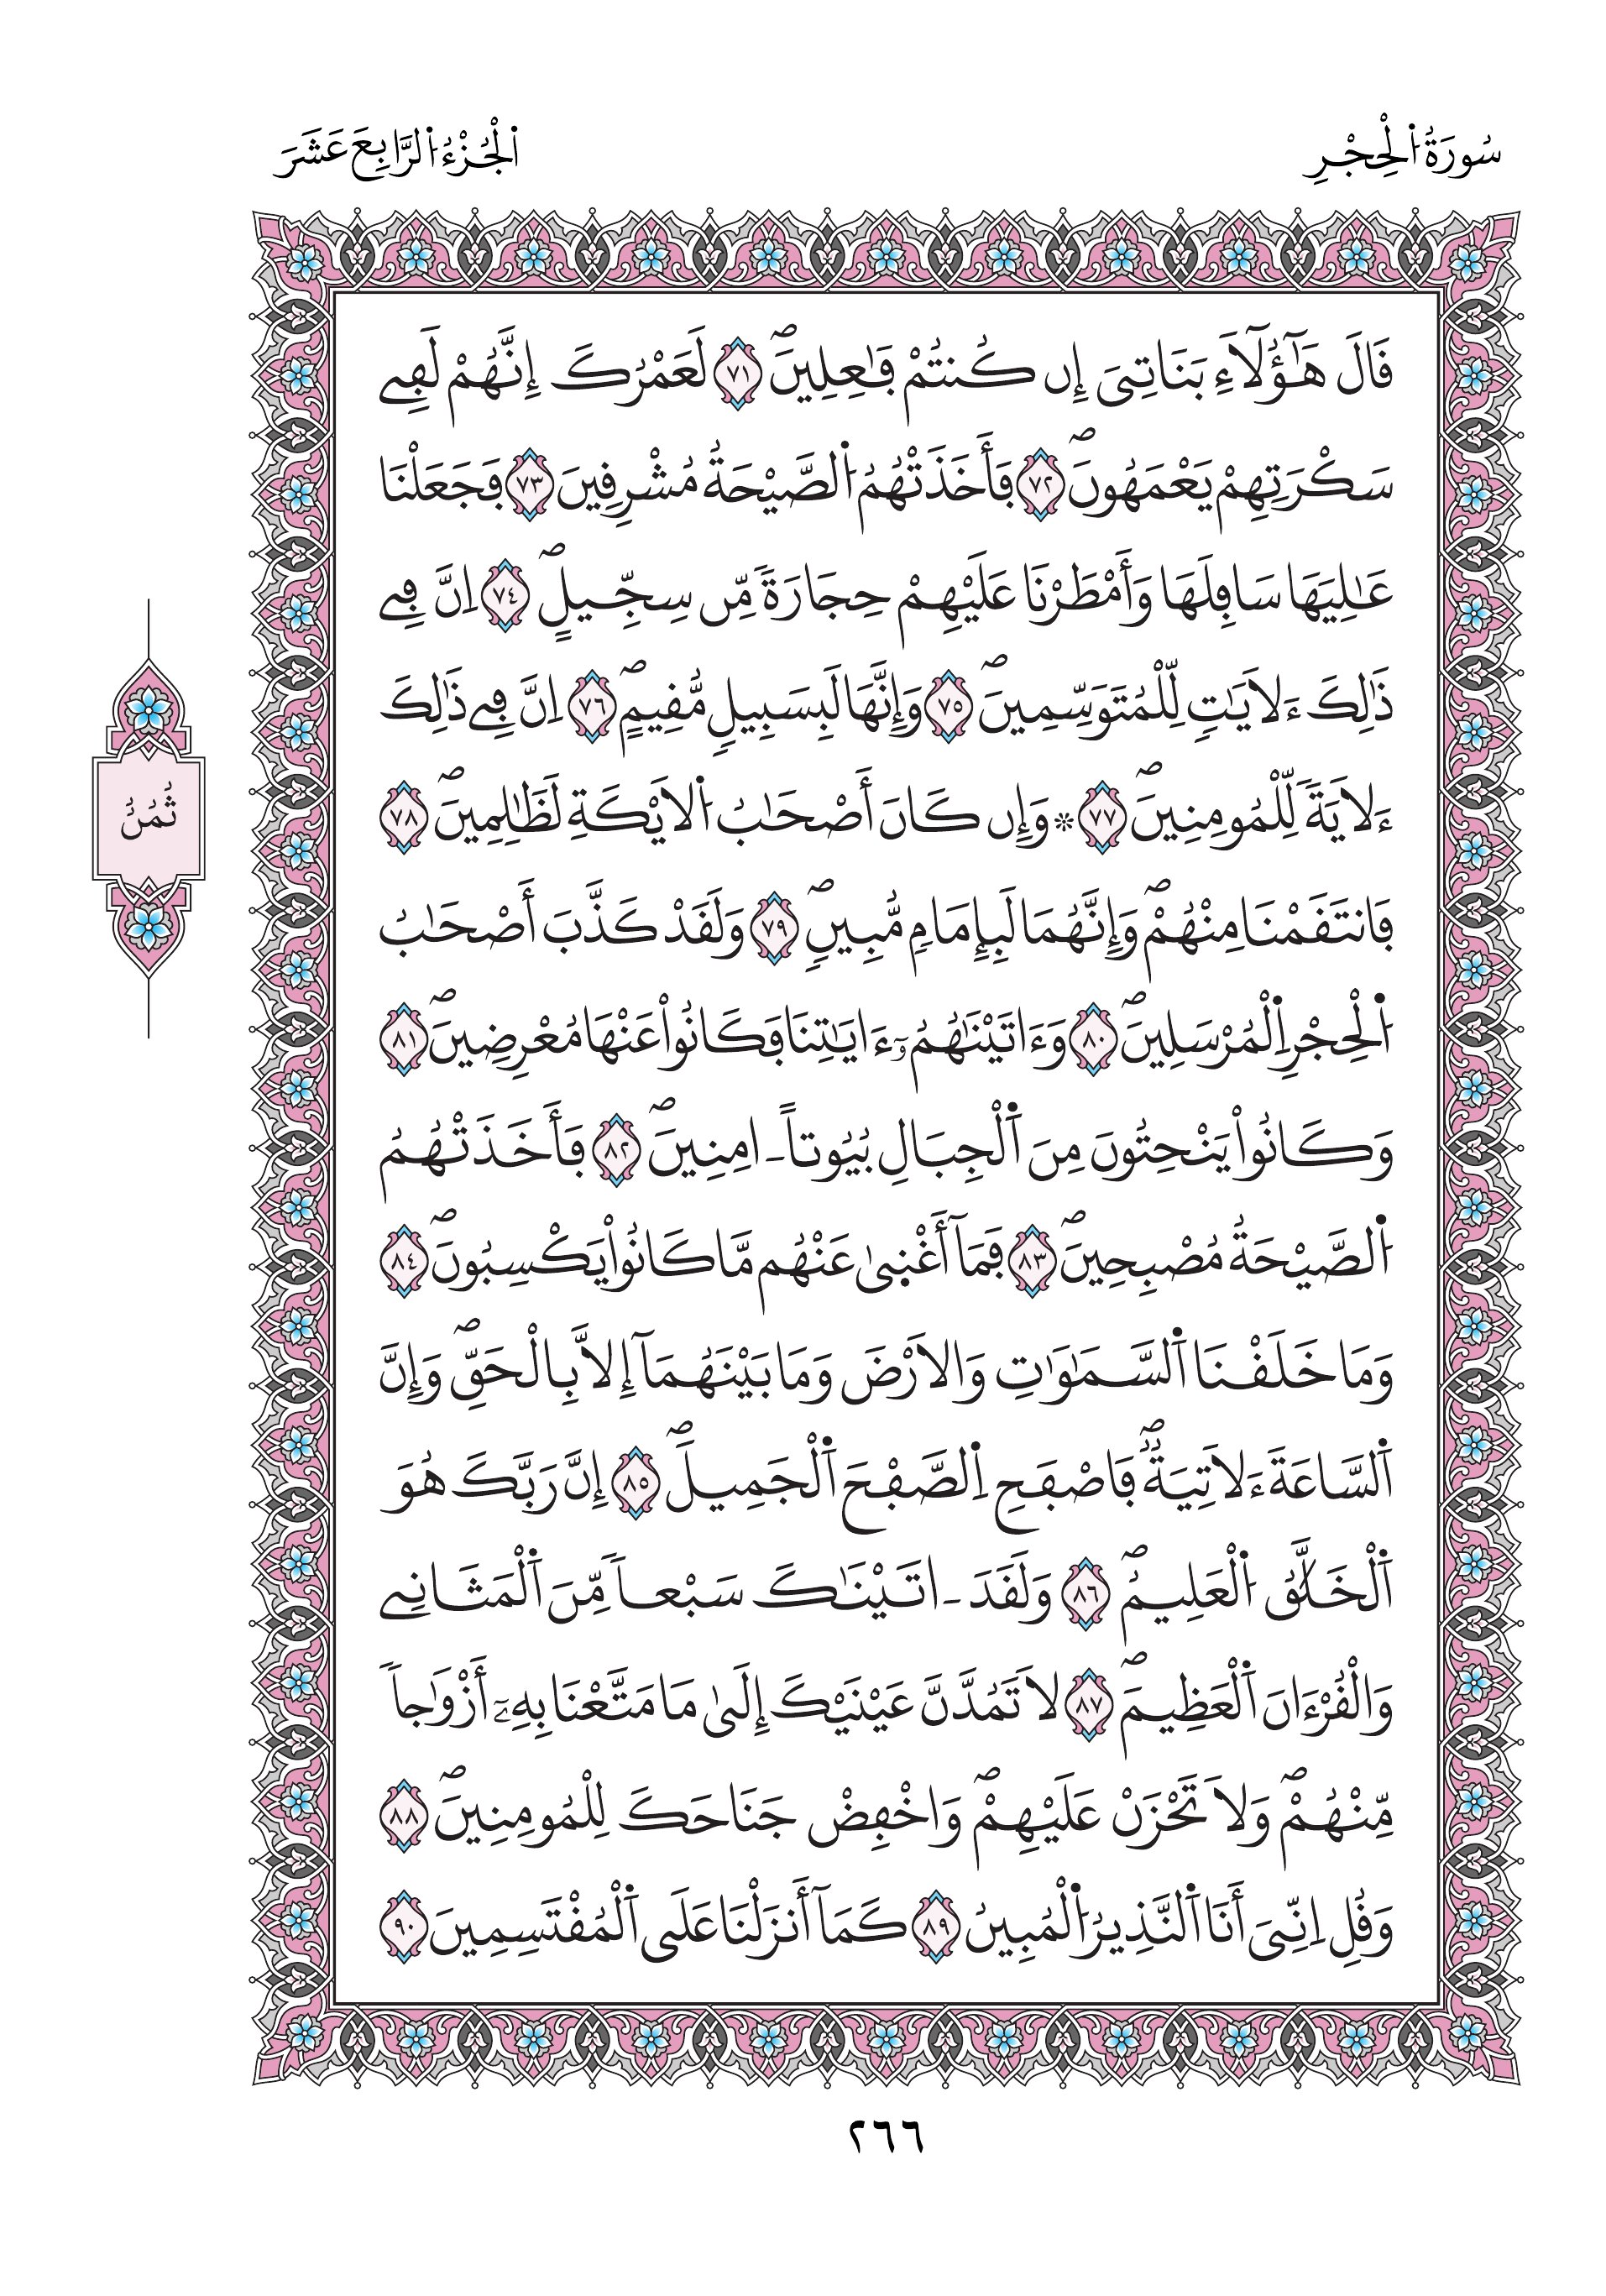 سُورَةُ اُ۬لْحِجْرِ
اَ۬لْجُزْءُ اُ۬لرَّابِعَ عَشَرَ
قَالَ هَٰٓؤُلَآءِ بَنَاتِيَ إِن كُنتُمْ فَٰعِلِينَۖ ٧١ لَعَمْرُكَ إِنَّهُمْ لَفِے
سَكْرَتِهِمْ يَعْمَهُونَۖ ٧٢ فَأَخَذَتْهُمُ اُ۬لصَّيْحَةُ مُشْرِقِينَ ٧٣ فَجَعَلْنَا
عَٰلِيَهَا سَافِلَهَا وَأَمْطَرْنَا عَلَيْهِمْ حِجَارَةٗ مِّن سِجِّيلٍۖ ٧٤ اِنَّ فِے
ذَٰلِكَ ءَلَايَٰتٖ لِّلْمُتَوَسِّمِينَۖ ٧٥ وَإِنَّهَا لَبِسَبِيلٖ مُّقِيمٍۖ ٧٦ اِنَّ فِے ذَٰلِكَ
ءَلَايَةٗ لِّلْمُومِنِينَۖ ٧٧ ۞ وَإِن كَانَ أَصْحَٰبُ اُ۬لَايْكَةِ لَظَٰلِمِينَۖ ٧٨
فَانتَقَمْنَا مِنْهُمْۖ وَإِنَّهُمَا لَبِإِمَامٖ مُّبِينٖۖ ٧٩ وَلَقَدْ كَذَّبَ أَصْحَٰبُ
اُ۬لْحِجْرِ اِ۬لْمُرْسَلِينَۖ ٨٠ وَءَاتَيْنَٰهُمُۥٓ ءَايَٰتِنَا فَكَانُواْ عَنْهَا مُعْرِضِينَۖ ٨١
وَكَانُواْ يَنْحِتُونَ مِنَ اَ۬لْجِبَالِ بُيُوتاً اٰمِنِينَۖ ٨٢ فَأَخَذَتْهُمُ
اُ۬لصَّيْحَةُ مُصْبِحِينَۖ ٨٣ فَمَآ أَغْنِىٰ عَنْهُم مَّا كَانُواْ يَكْسِبُونَۖ ٨٤
وَمَا خَلَقْنَا اَ۬لسَّمَٰوَٰتِ وَالَارْضَ وَمَا بَيْنَهُمَآ إِلَّا بِالْحَقِّۖ وَإِنَّ
اَ۬لسَّاعَةَ ءَلَاتِيَةٞۖ فَاصْفَحِ اِ۬لصَّفْحَ اَ۬لْجَمِيلَۖ ٨٥ إِنَّ رَبَّكَ هُوَ
اَ۬لْخَلَّٰقُ اُ۬لْعَلِيمُۖ ٨٦ وَلَقَدَ اٰتَيْنَٰكَ سَبْعاٗ مِّنَ اَ۬لْمَثَانِے
وَالْقُرْءَانَ اَ۬لْعَظِيمَۖ ٨٧ لَا تَمُدَّنَّ عَيْنَيْكَ إِلَىٰ مَا مَتَّعْنَا بِهِۦٓ أَزْوَٰجاٗ
مِّنْهُمْۖ وَلَا تَحْزَنْ عَلَيْهِمْۖ وَاخْفِضْ جَنَاحَكَ لِلْمُومِنِينَۖ ٨٨
وَقُلِ اِنِّيَ أَنَا اَ۬لنَّذِيرُ اُ۬لْمُبِينُ ٨٩ كَمَآ أَنزَلْنَا عَلَى اَ۬لْمُقْتَسِمِينَ ٩٠
ثُمُنُ
٢٦٦